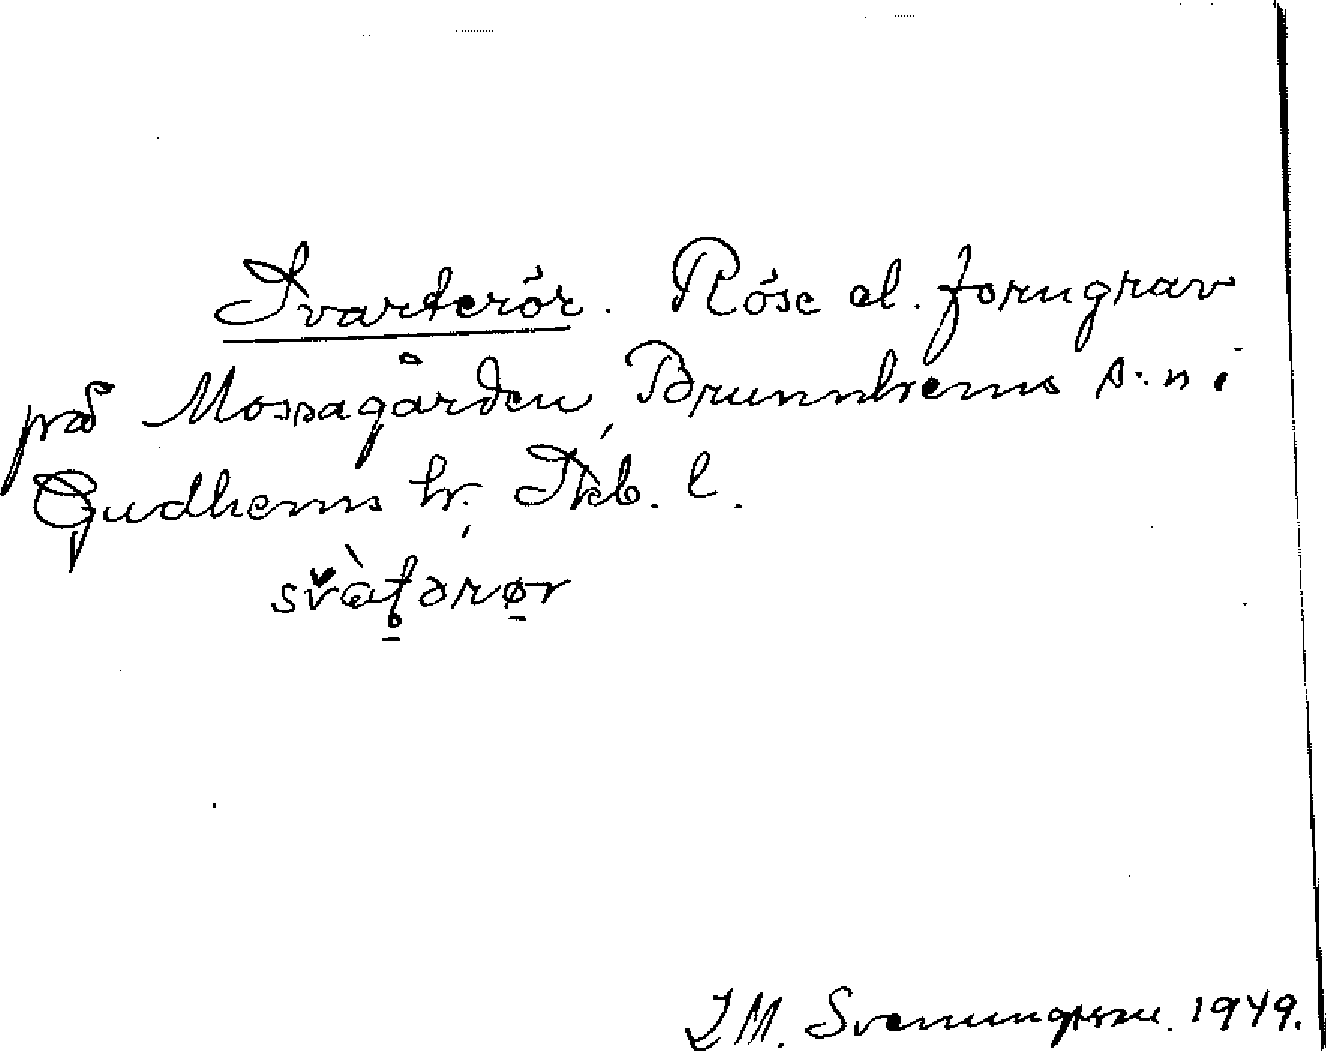 Svarterör. Röse el. forngrav
på Mossagården, Brunnhems s:n i
Gudhems hr. Skb. l.
I M. Svenungsson. 1949.